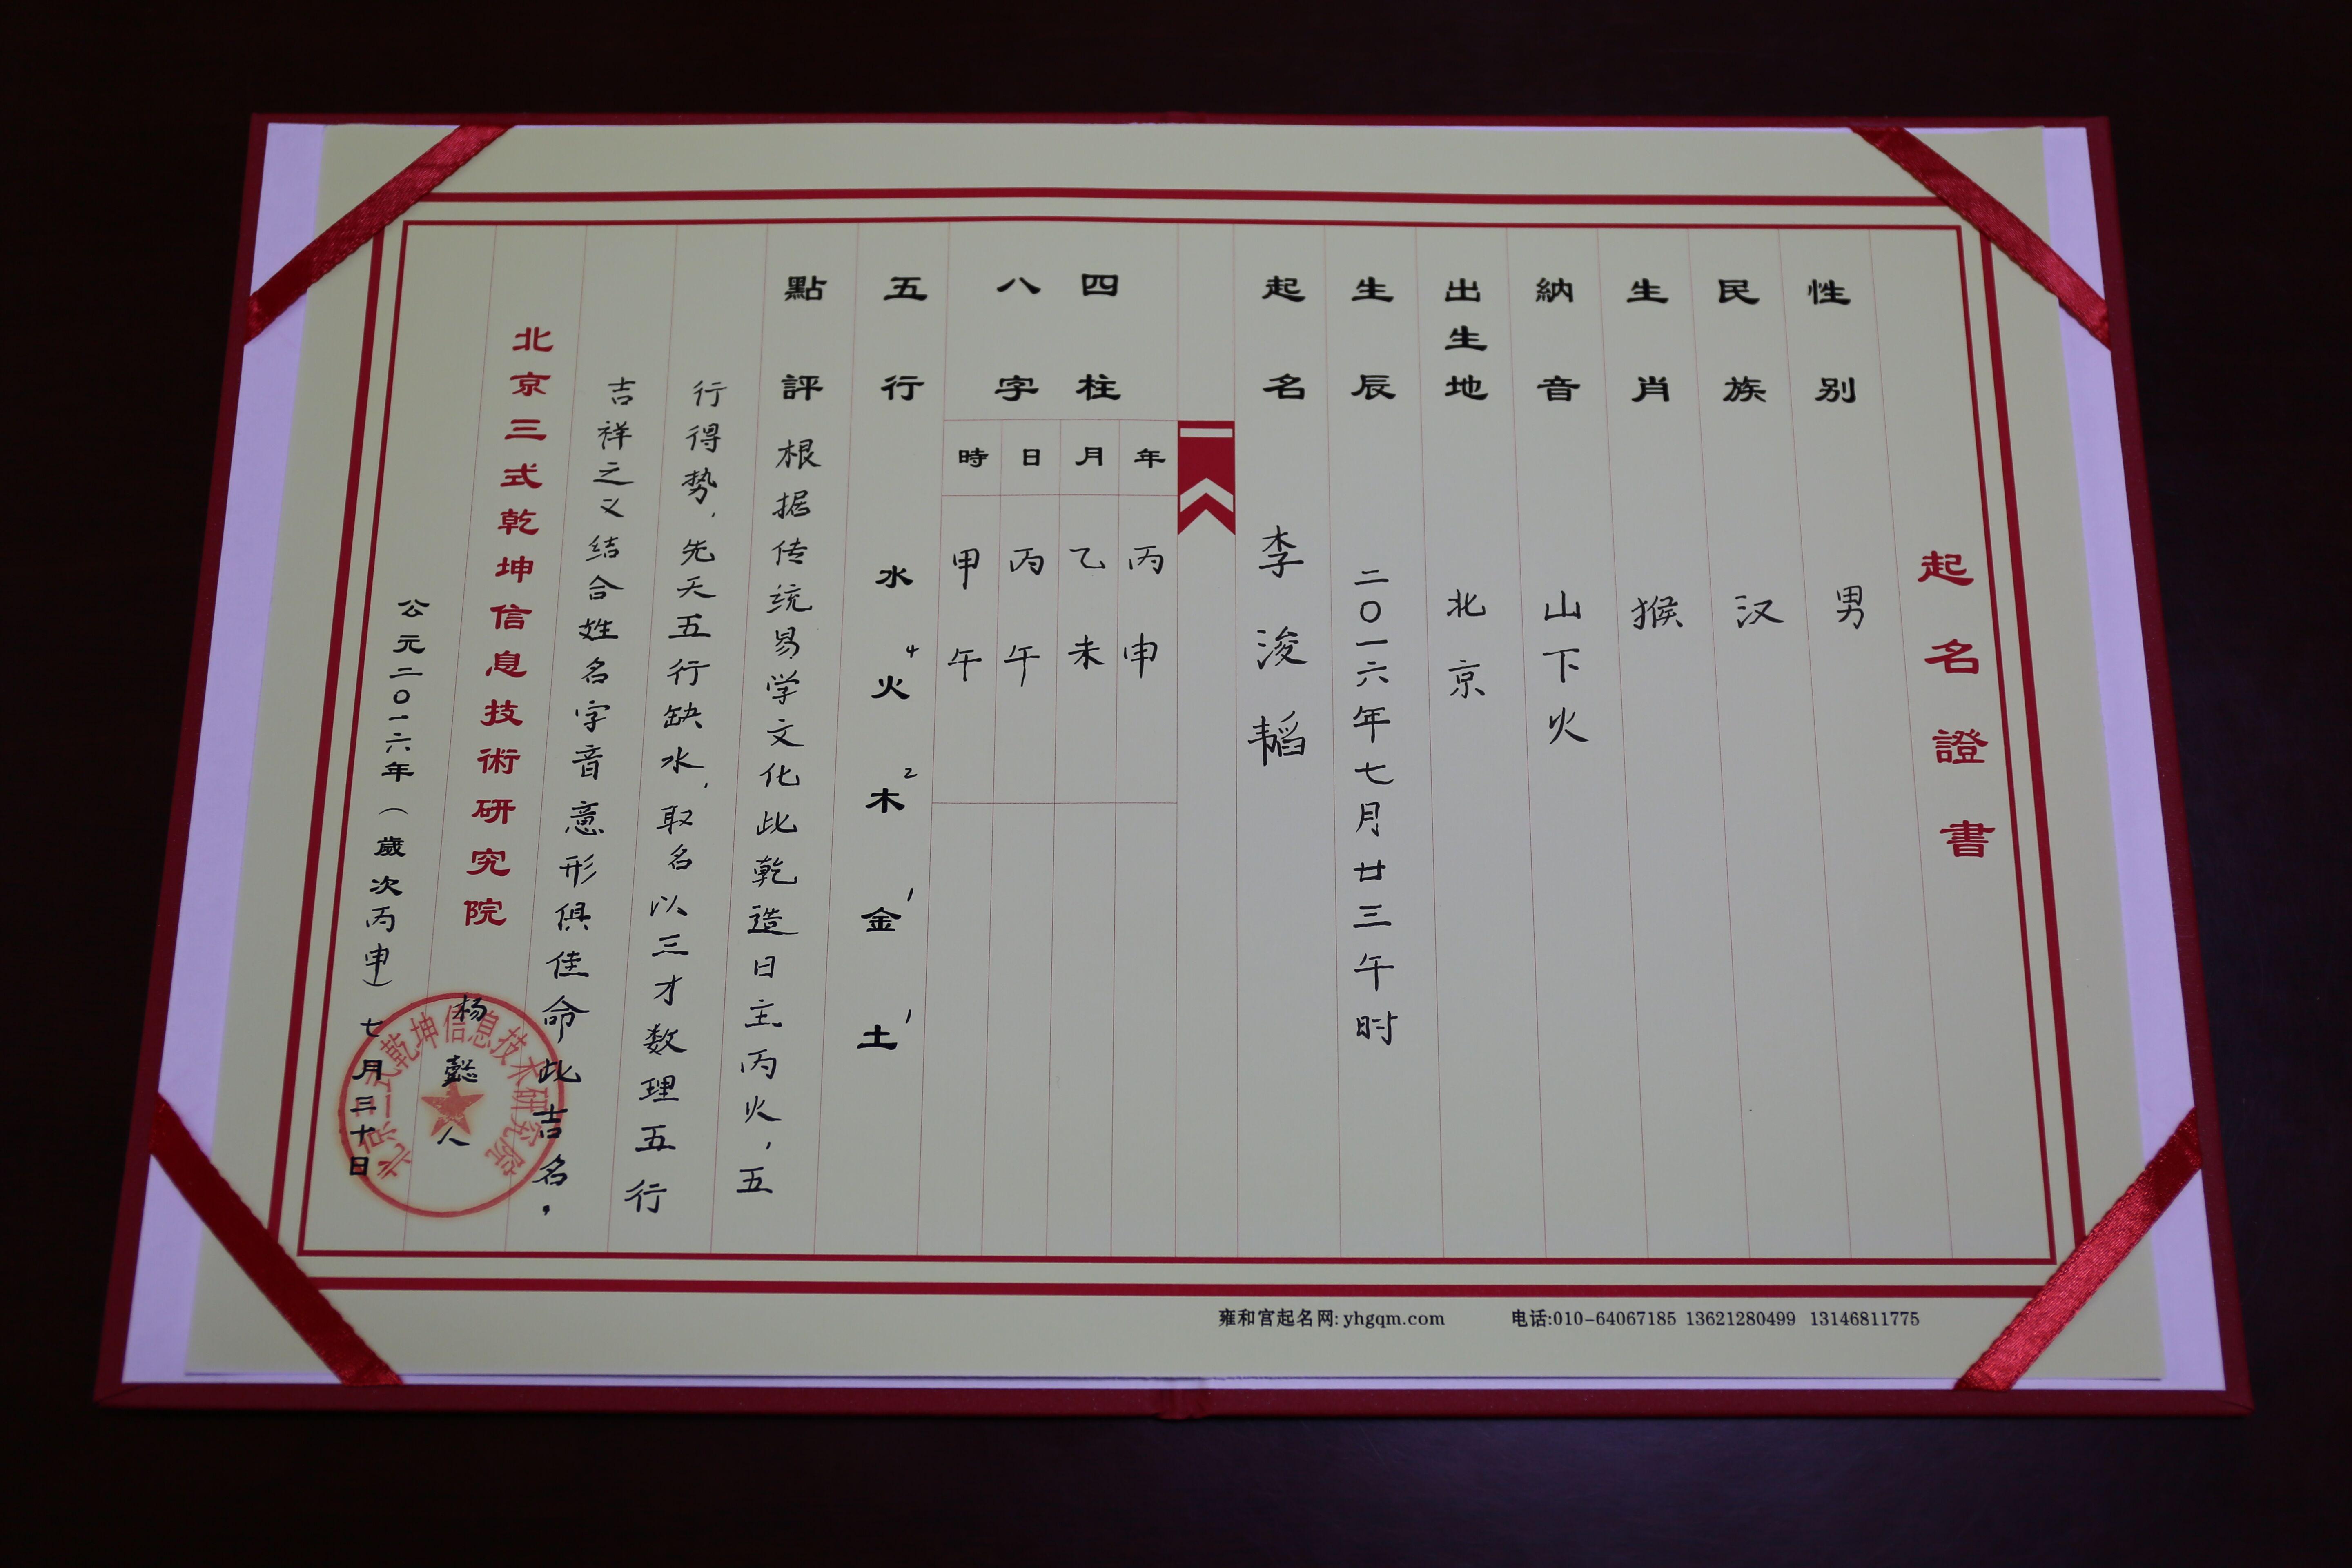 起名證書
性别 男
民族 汉
生肖 猴
納音 山下火
出生地 北京
生辰 二〇一六年七月廿三午时
起名 李浚韬
四柱
八字
年 丙申
月 乙未
日 丙午
時 甲午
五行 水 火4 木2 金1 土1
點評 根据传统易学文化此乾造日主丙火,五
行得势.先天五行缺水,取名以三才数理五行
吉祥之义结合姓名字音意形俱佳命此吉名.
北京三式乾坤信息技術研究院 杨懿人
公元二〇一六年(歲次丙申)七月三十日
北京三式乾坤信息技术研究院
雍和宫起名网: yhgqm.com 电话:010-64067185 13621280499 13146811775